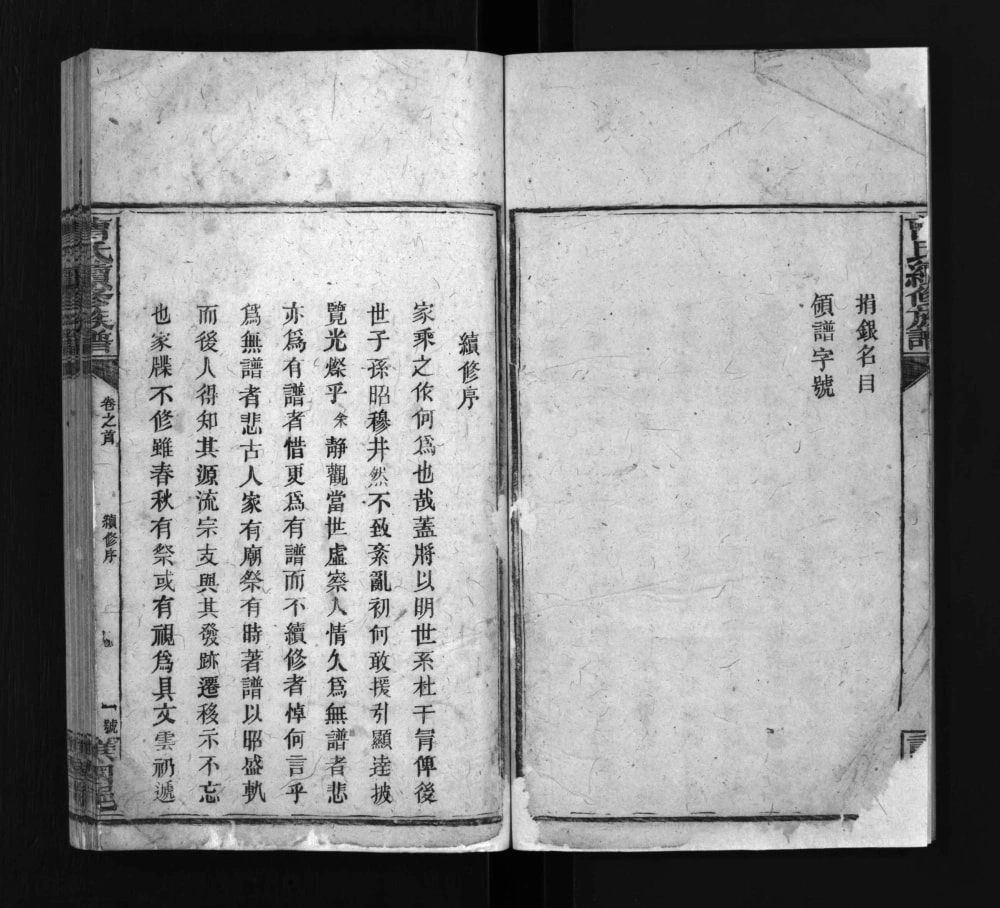 曹氏續修族譜
捐銀名目
領譜字號
續修序
家乘之作何爲也哉蓋將以明世系杜干冒俾後
世子孫昭穆井然不致紊亂初何敢援引顯達披
覽光燦乎余靜觀當世虛察人情久爲無譜者悲
亦爲有譜者惜更爲有譜而不續修者悼何言乎
爲無譜者悲古人家有廟祭有時著譜以昭盛軌
而後人得知其源流宗支與其發跡遷移示不忘
也家牒不修雖春秋有祭或有視爲具文雲礽遞
曹氏續修族譜
卷之首
續修序
一號